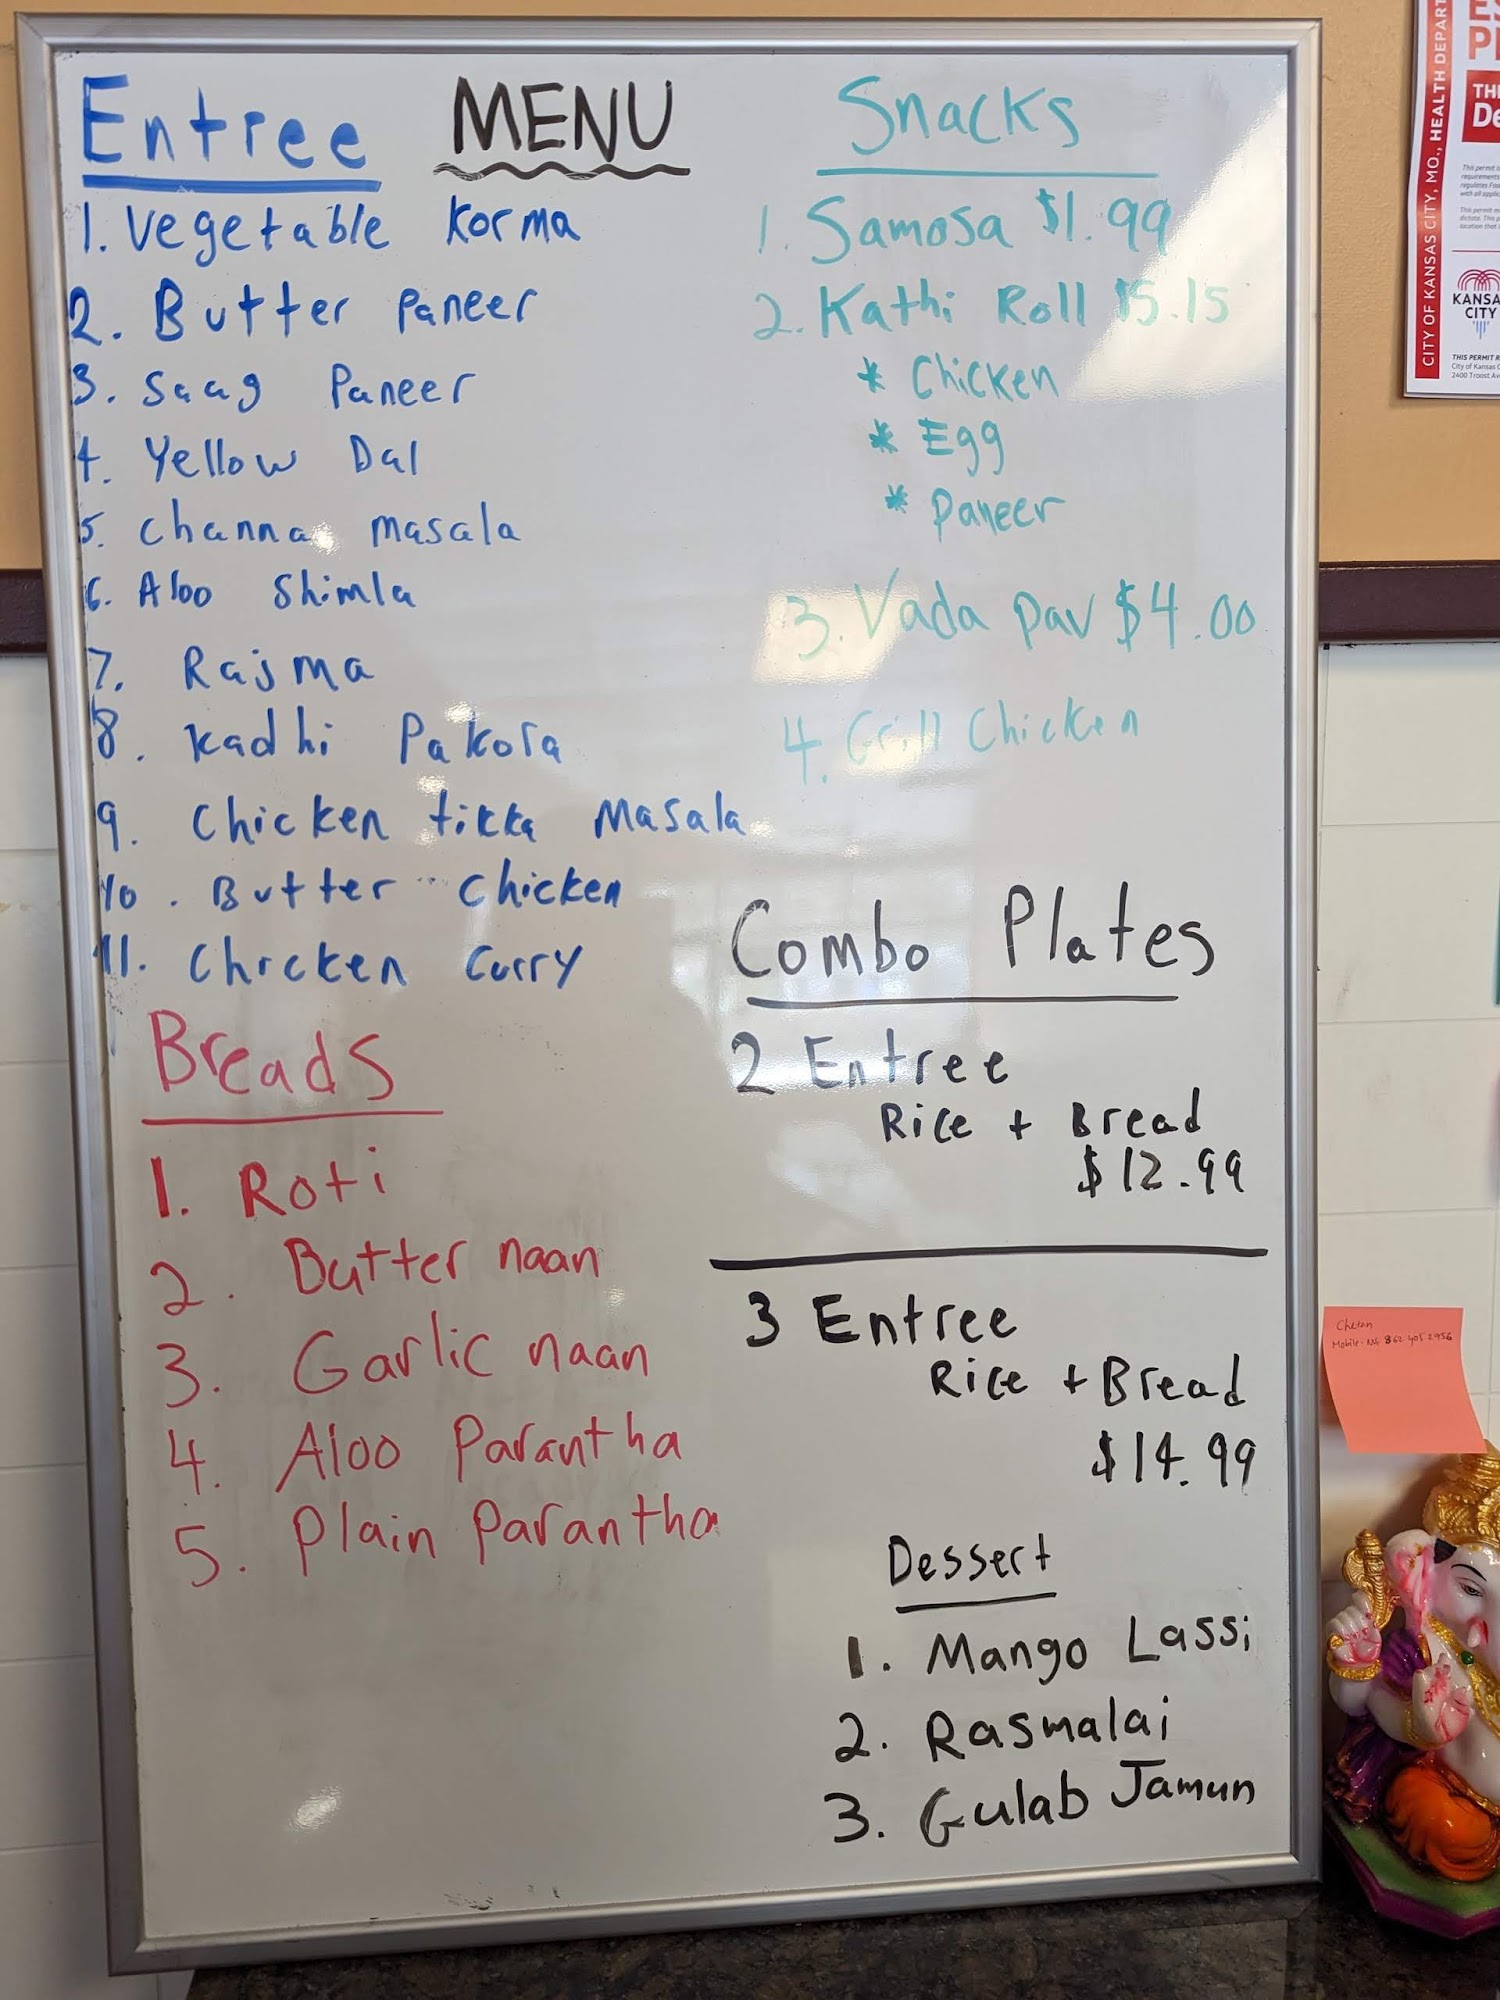 MENU
Entree
1. Vegetable Korma
2. Butter Paneer
3. Saag Paneer
4. Yellow Dal
5. Channa Masala
6. Aloo Shimla
7. Rajma
8. Kadhi Pakora
9. Chicken tikka Masala
10. Butter Chicken
11. Chicken Curry
Breads
1. Roti
2. Butter naan
3. Garlic naan
4. Aloo Parantha
5. Plain Parantha
Snacks
1. Samosa $1.99
2. Kathi Roll $5.15
* Chicken
* Egg
* Paneer
3. Vada Pav $4.00
4. Grill Chicken
Combo Plates
2 Entree
Rice + Bread
$12.99
3 Entree
Rice + Bread
$14.99
Dessert
1. Mango Lassi
2. Rasmalai
3. Gulab Jamun
CITY OF KANSAS CITY, MO., HEALTH DEPAR
KANSA
CITY
THIS PERMIT R
City of Kansas C
2400 Troost Av
Chetan